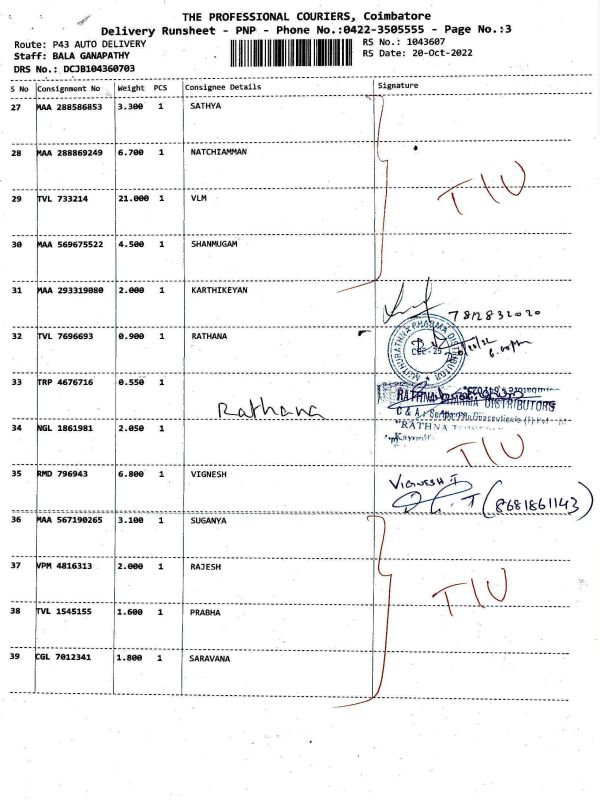 THE PROFESSIONAL COURIERS, Coimbatore
Delivery Runsheet - PNP - Phone No.:0422-3505555 - Page No.:3
Route: P43 AUTO DELIVERY
RS No.: 1043607
Staff: BALA GANAPATHY
RS Date: 20-Oct-2022
DRS No.: DCJB104360703
S No Consignment No Weight PCS Consignee Details Signature
27 MAA 288586853 3.300 1 SATHYA
28 MAA 288869249 6.700 1 NATCHIAMMAN
T/U
29 TVL 733214 21.000 1 VLM
30 MAA 569675522 4.500 1 SHANMUGAM
31 MAA 293319080 2.000 1 KARTHIKEYAN
7812832020
32 TVL 7696693 0.900 1 RATHANA
MUTHURATHNA PHARMA DISTRIBUTOR
CBE - 25
6.00pm
33 TRP 4676716 0.550 1
RATHNA PHARMA DISTRIBUTORS
Rathana
C & A
34 NGL 1861981 2.050 1
RATHNA
T/U
35 RMD 796943 6.800 1 VIGNESH
VIGNESH T
(8681861143)
36 MAA 567190265 3.100 1 SUGANYA
37 VPM 4816313 2.000 1 RAJESH
T/U
38 TVL 1545155 1.600 1 PRABHA
39 CGL 7012341 1.800 1 SARAVANA